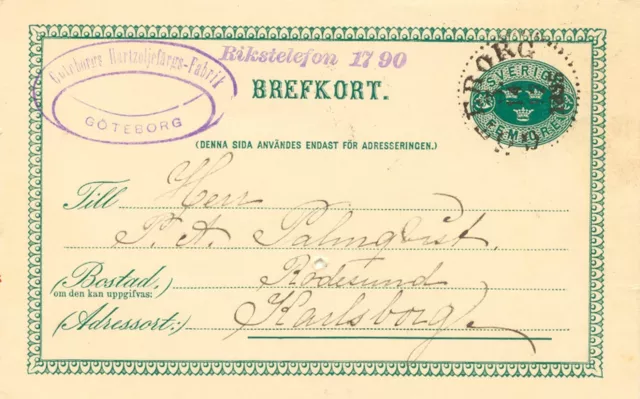 Göteborgs Hartzoljefärgs-Fabrik
GÖTEBORG
Rikstelefon 1790
BREFKORT.
SVERIGE
FEM ÖRE
(DENNA SIDA ANVÄNDES ENDAST FÖR ADRESSERINGEN.)
Till Herr
P. A. Palmqvist,
(Bostad, Rödesund
om den kan uppgifvas:)
(Adressort:) Karlsborg